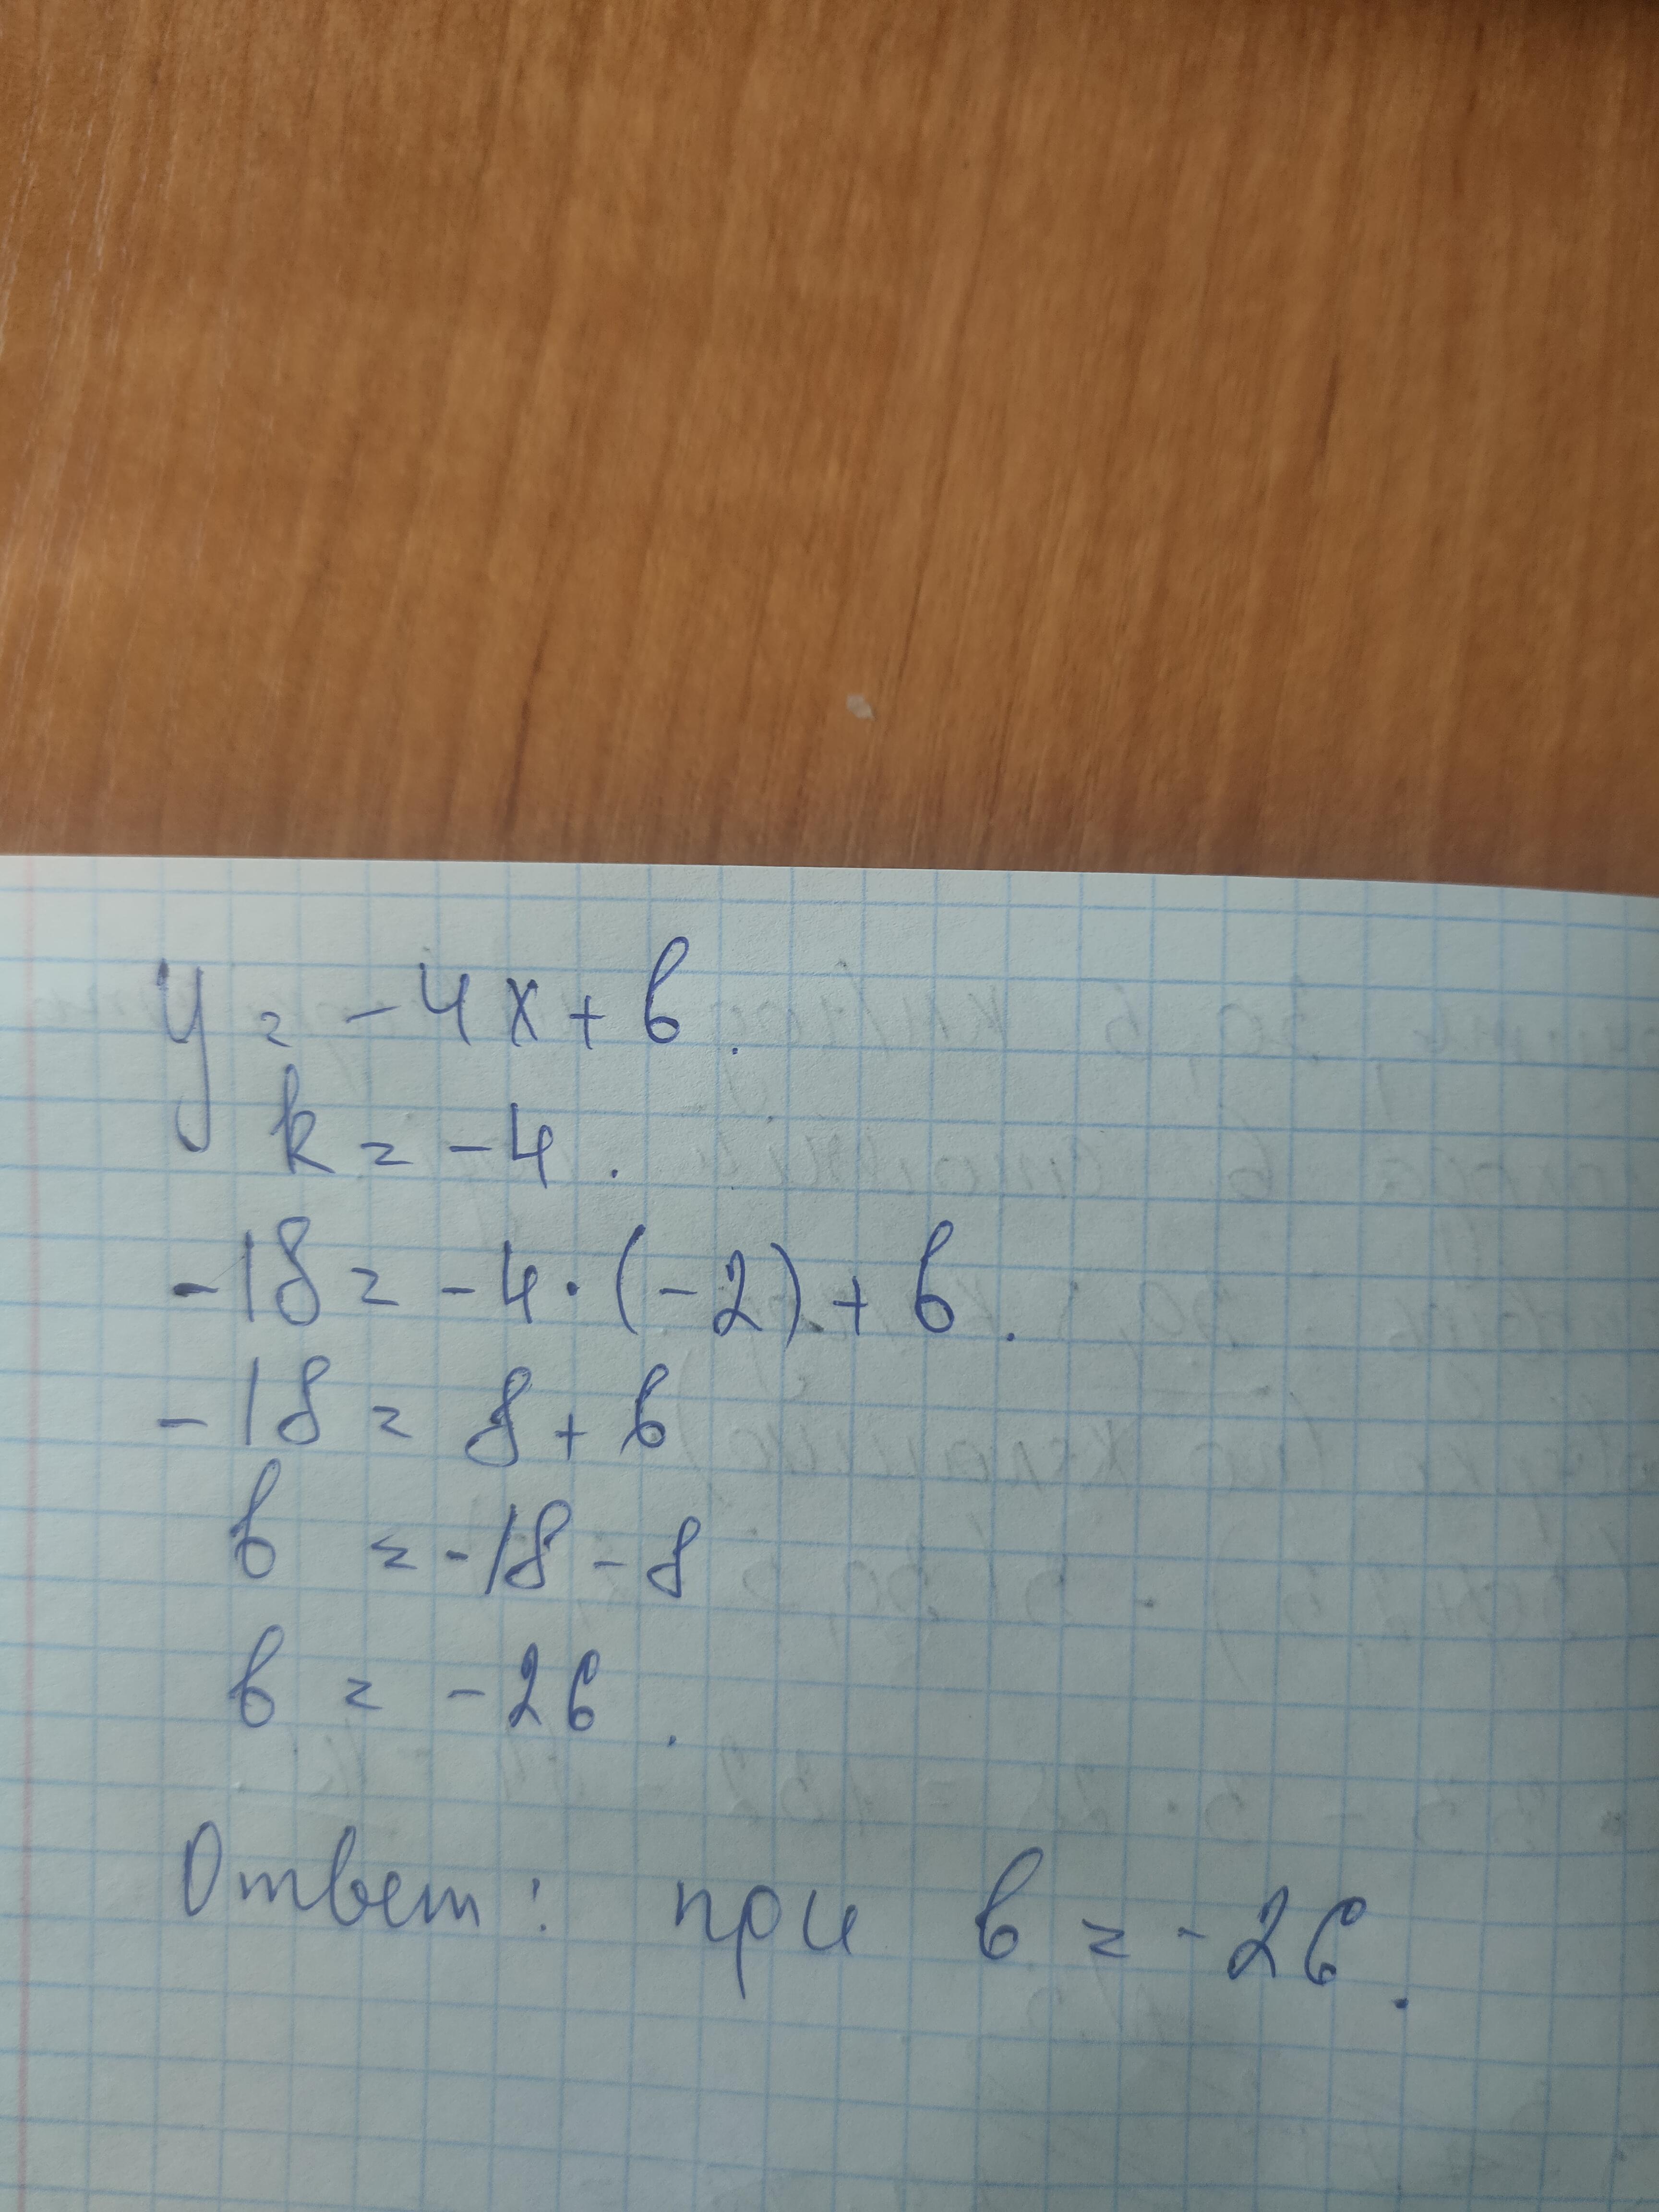 y = -4x + b.
k = -4.
-18 = -4·(-2) + b.
-18 = 8 + b
b = -18 - 8
b = -26.
Ответ: при b = -26.